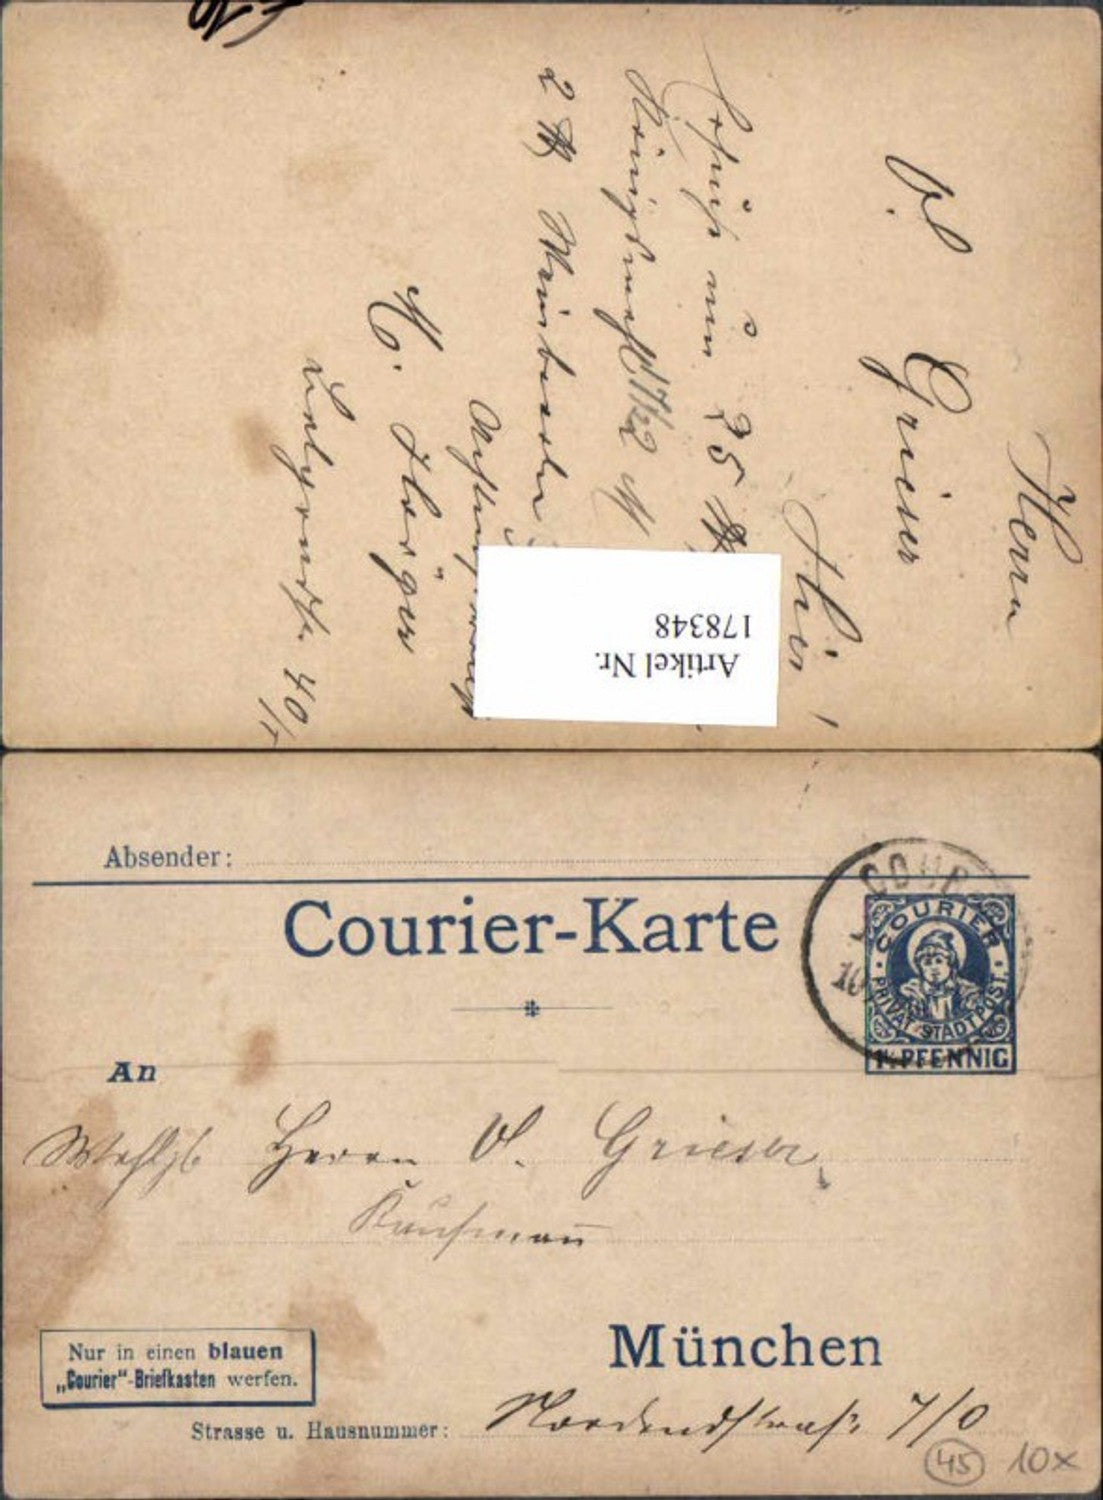 Herrn
V. Grieser
Hier!
Ersuche um 25 ℔
Königsmehl 17 1/2 M
2 ℔ Weinbeerln
Achtungsvollst
K. Kröger
40/I
Artikel Nr.
178348
Absender:
Courier-Karte
COUR
10
COURIER
PRIVAT-STADTPOST
1½ PFENNIG
An
Wohlgb Herrn V. Grieser,
Kaufmann
München
Nur in einen blauen
„Courier"-Briefkasten werfen.
Strasse u. Hausnummer: Nordendstraße 7/0
45 10x